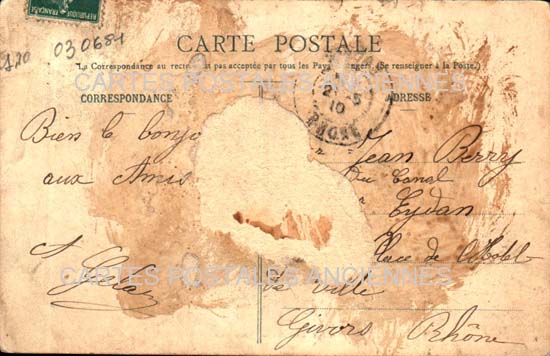 RÉPUBLIQUE FRANÇAISE
A20 030684
CARTE POSTALE
La Correspondance au recto est pas acceptée par tous les Pays angers. (Se renseigner à la Poste.)
CARTES POSTALES ANCIENNES
CORRESPONDANCE
ADRESSE
10
RHONE
Bien le bonjo
aux Amis
Jean Berry
Du Canal
Eydan
Place de
de ville
Givors Rhône
CARTES POSTALES ANCIENNES